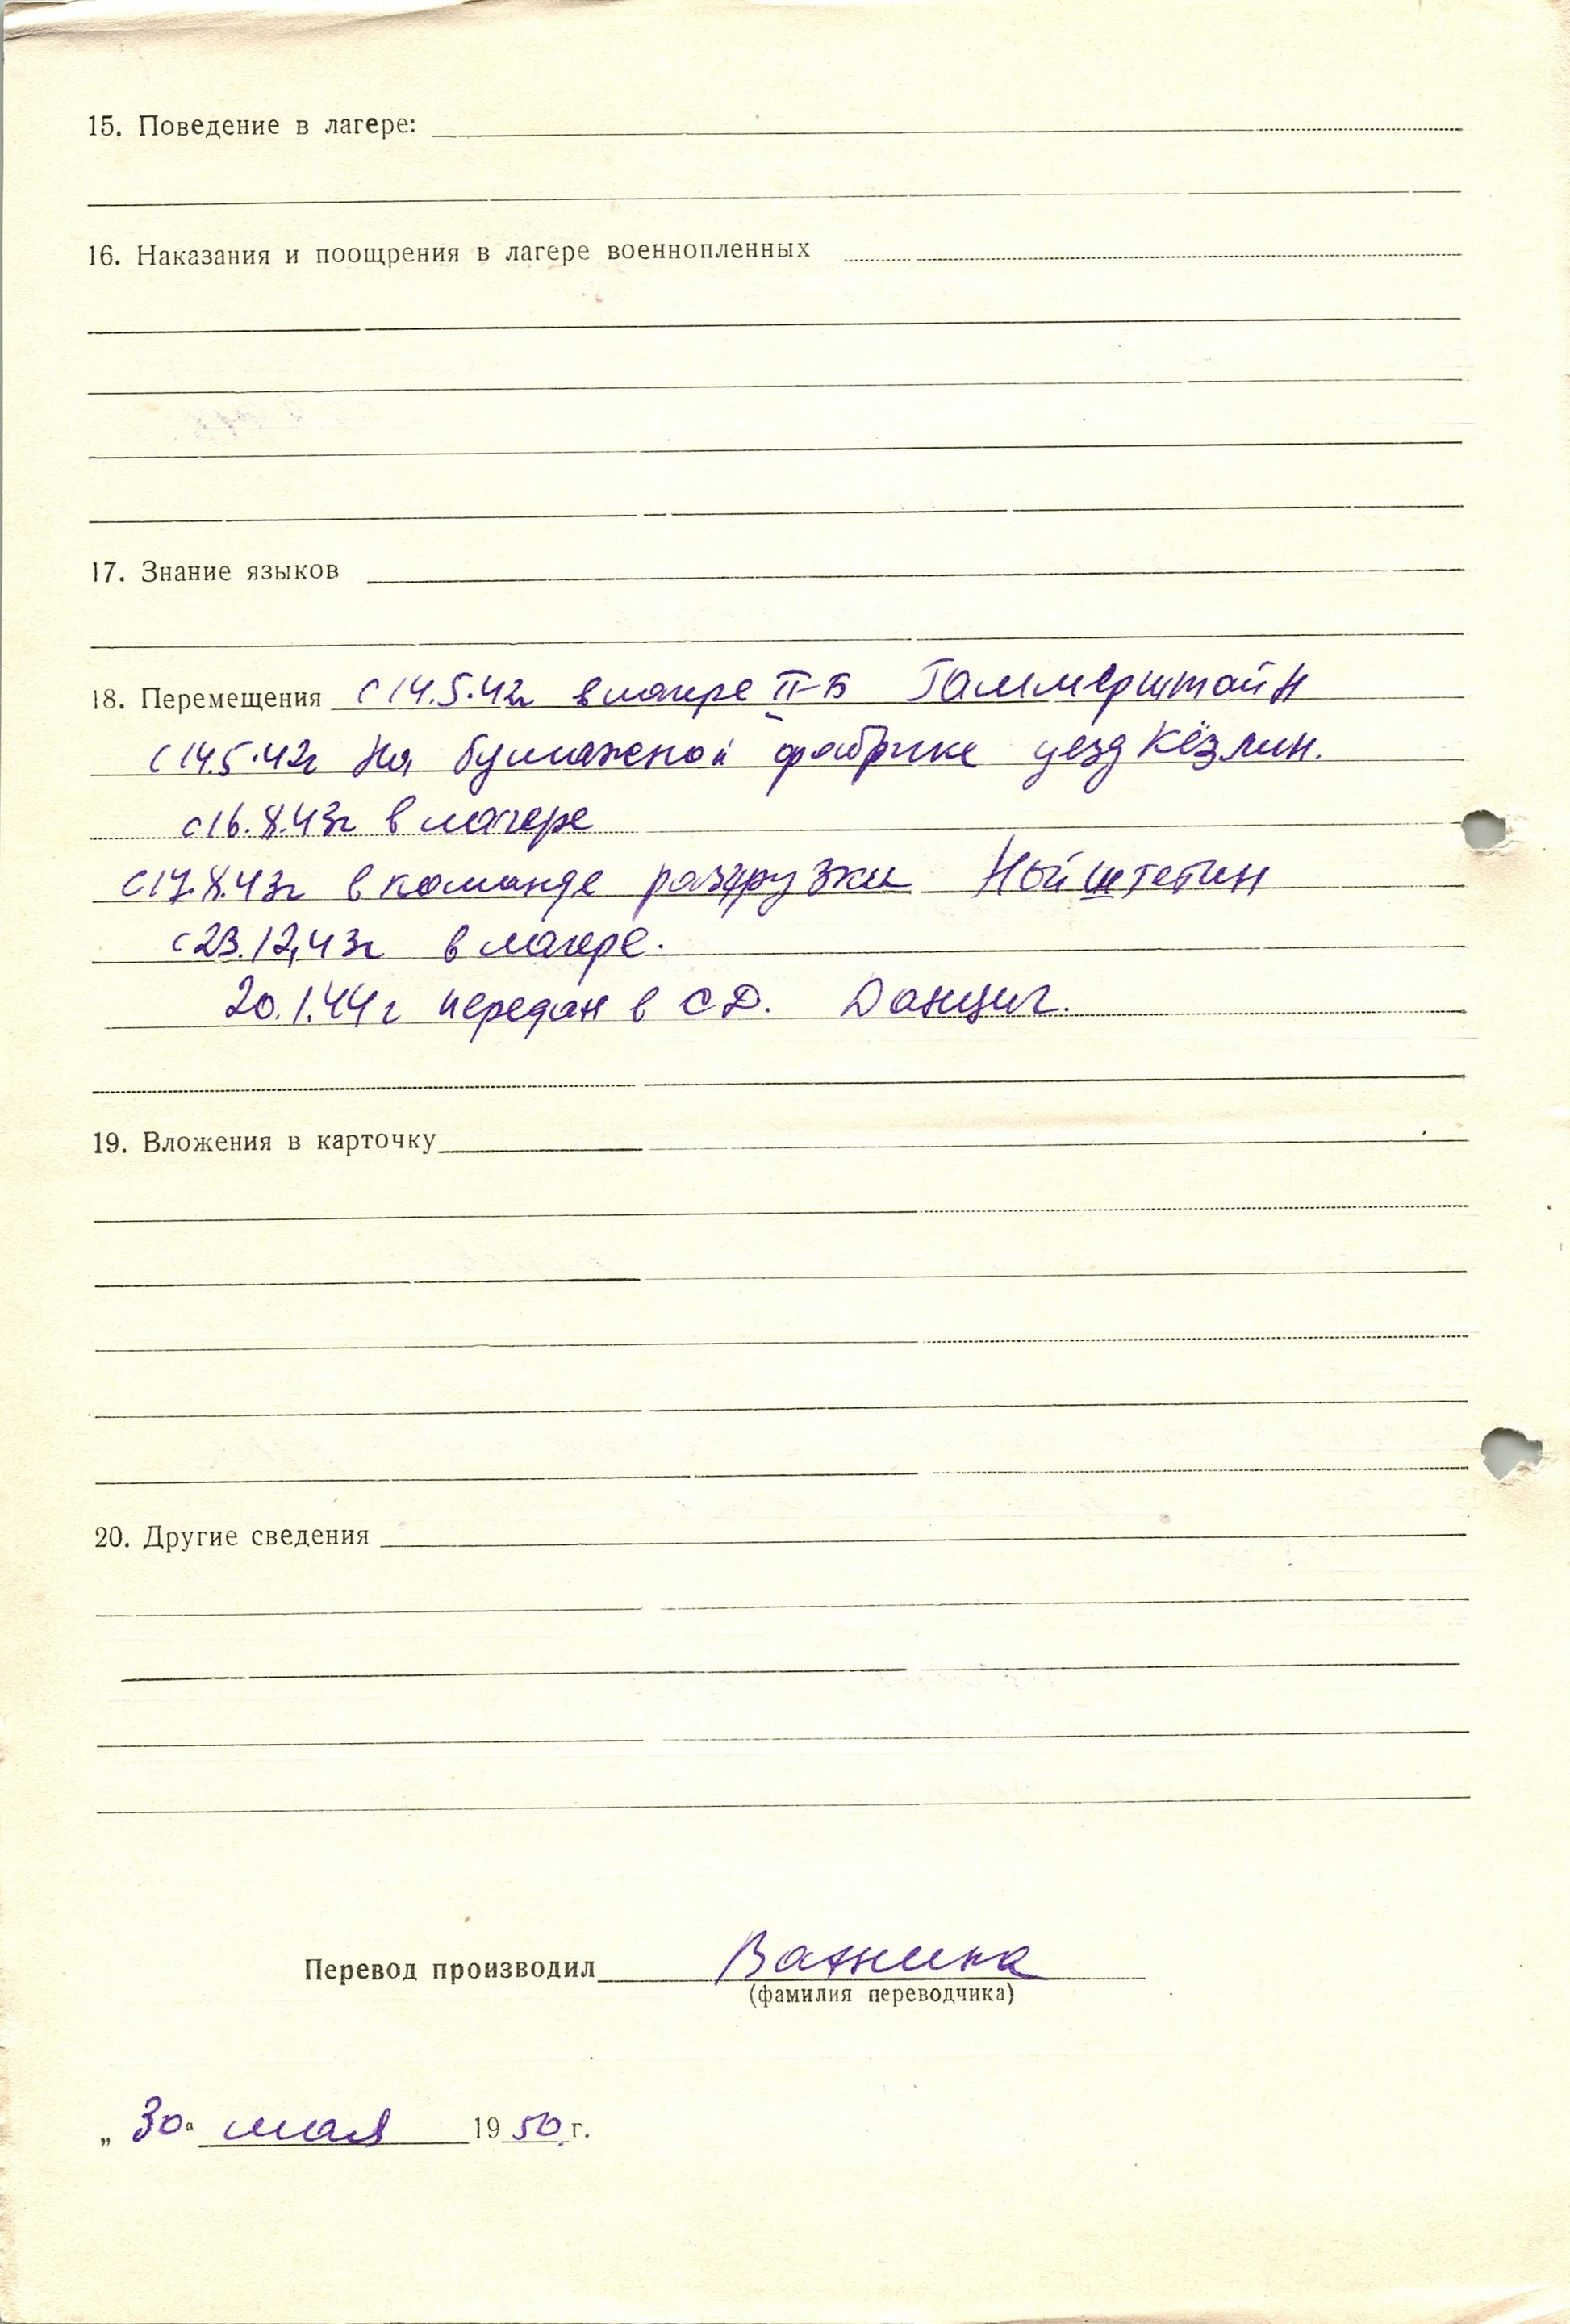 15. Поведение в лагере:
16. Наказания и поощрения в лагере военнопленных
17. Знание языков
18. Перемещения с 14.5.42г в лагере II-Б Гаммерштайн
с 14.5.42г на бумажной фабрике уезд Кёзлин.
с 16.X.43г в лагере
с 17.X.43г в команде разгрузки Нойштетин
с 23.12.43г в лагере.
20.1.44г передан в СД. Данциг.
19. Вложения в карточку
20. Другие сведения
Перевод производил
(фамилия переводчика)
„30" мая 1950 г.